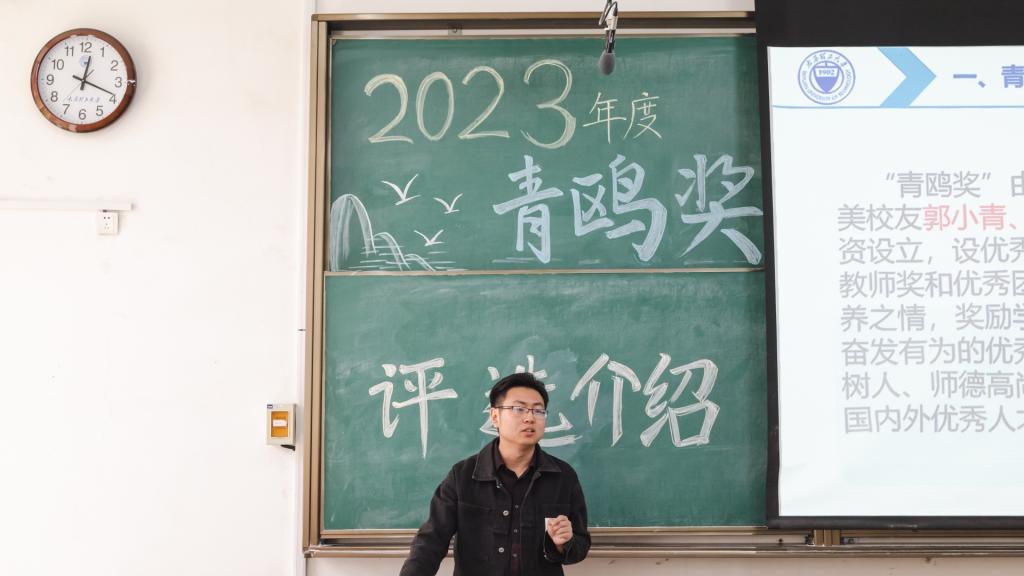 12
11
1
10
2
9
3
8
4
7
5
6
2023年度
青鸥奖
评选介绍
1902
一、青
“青鸥奖”由
美校友郭小青、
资设立，设优秀
教师奖和优秀团
养之情，奖励学
奋发有为的优秀
树人、师德高尚
国内外优秀人才